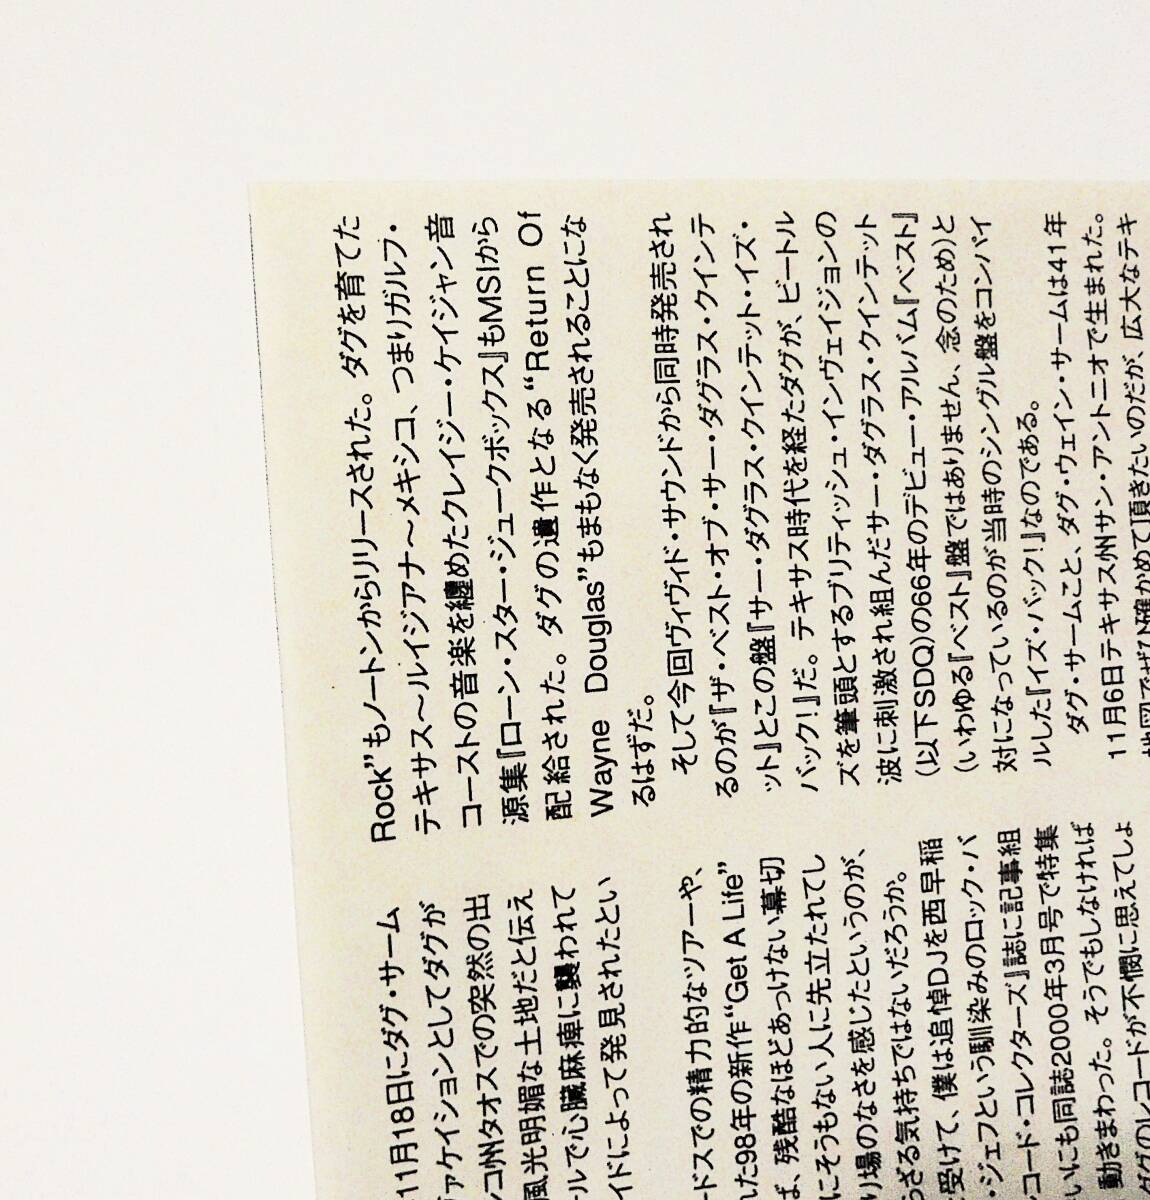 11月18日にダグ・サーム
ヴァケイションとしてダグが
コ州タオスでの突然の出
風光明媚な土地だと伝え
ールで心臓麻痺に襲われて
イドによって発見されたとい
ードスでの精力的なツアーや、
れた98年の新作“Get A Life”
ば、残酷なほどあっけない幕切
にそうもない人に先立たれてし
り場のなさを感じたというのが、
わざる気持ちではないだろうか。
受けて、僕は追悼DJを西早稲
ジェフという馴染みのロック・バ
コード・コレクターズ』誌に記事組
いにも同誌2000年3月号で特集
動きまわった。そうでもしなければ
ダグのレコードが不憫に思えてしょ
Rock”もノートンからリリースされた。ダグを育てた
テキサス〜ルイジアナ〜メキシコ、つまりガルフ・
コーストの音楽を纏めたクレイジー・ケイジャン音
源集『ローン・スター・ジュークボックス』もMSIから
配給された。ダグの遺作となる“Return Of
Wayne Douglas”もまもなく発売されることにな
るはずだ。
そして今回ヴィヴィド・サウンドから同時発売され
るのが『ザ・ベスト・オブ・サー・ダグラス・クインテ
ット』とこの盤『サー・ダグラス・クインテット・イズ・
バック!』だ。テキサス時代を経たダグが、ビートル
ズを筆頭とするブリティッシュ・インヴェイジョンの
波に刺激され組んだサー・ダグラス・クインテット
(以下SDQ)の66年のデビュー・アルバム『ベスト』
(いわゆる『ベスト』盤ではありません、念のため)と
対になっているのが当時のシングル盤をコンパイ
ルした『イズ・バック!』なのである。
ダグ・サームこと、ダグ・ウェイン・サームは41年
11月6日テキサス州サン・アントニオで生まれた。
地図でぜひ確かめて頂きたいのだが、広大なテキ